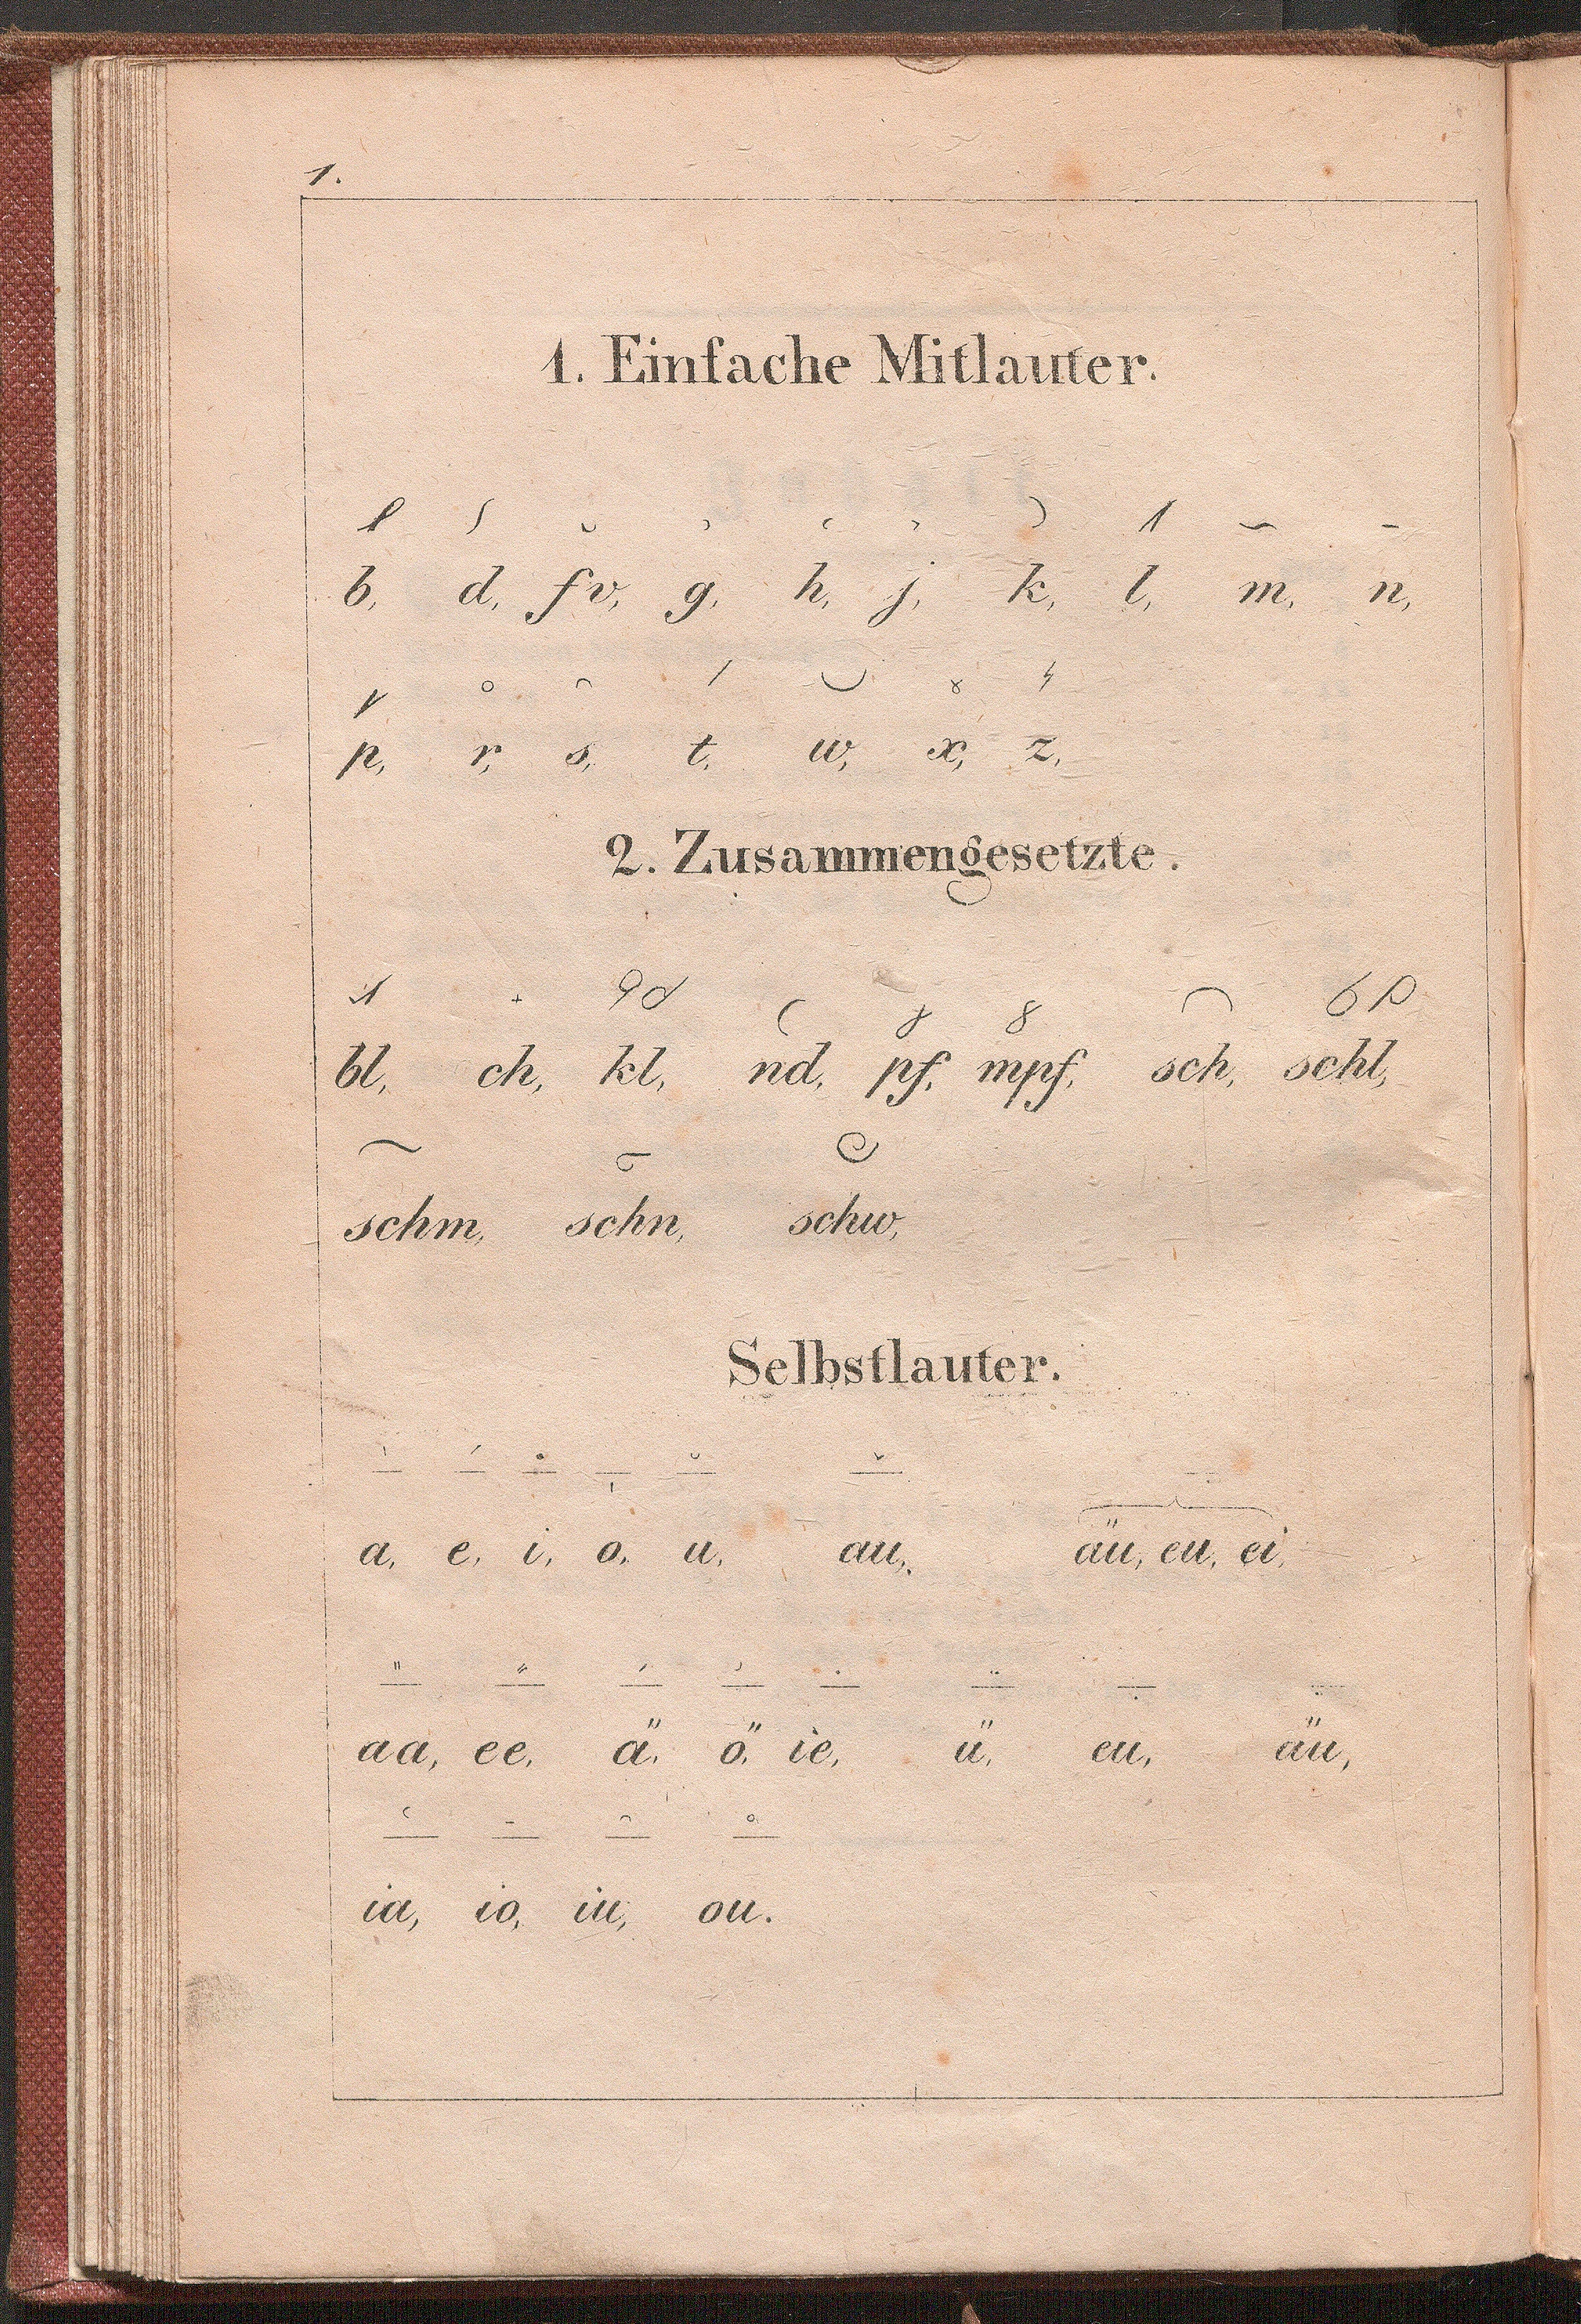 1.
1. Einfache Mitlauter.
b, d, f v, g, h, j, k, l, m, n,
p, r, s, t, w, x, z,
2. Zusammengesetzte.
bl, ch, kl, nd, pf, mpf, sch, schl,
schm, schn, schw,
Selbstlauter.
a, e, i, o, u, au, äu, eu, ei,
aa, ee, ä, ö, ie, ü, eu, äu,
ia, io, iu, ou.